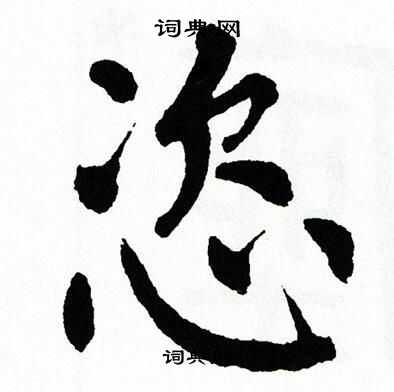 词典网
恣
词典